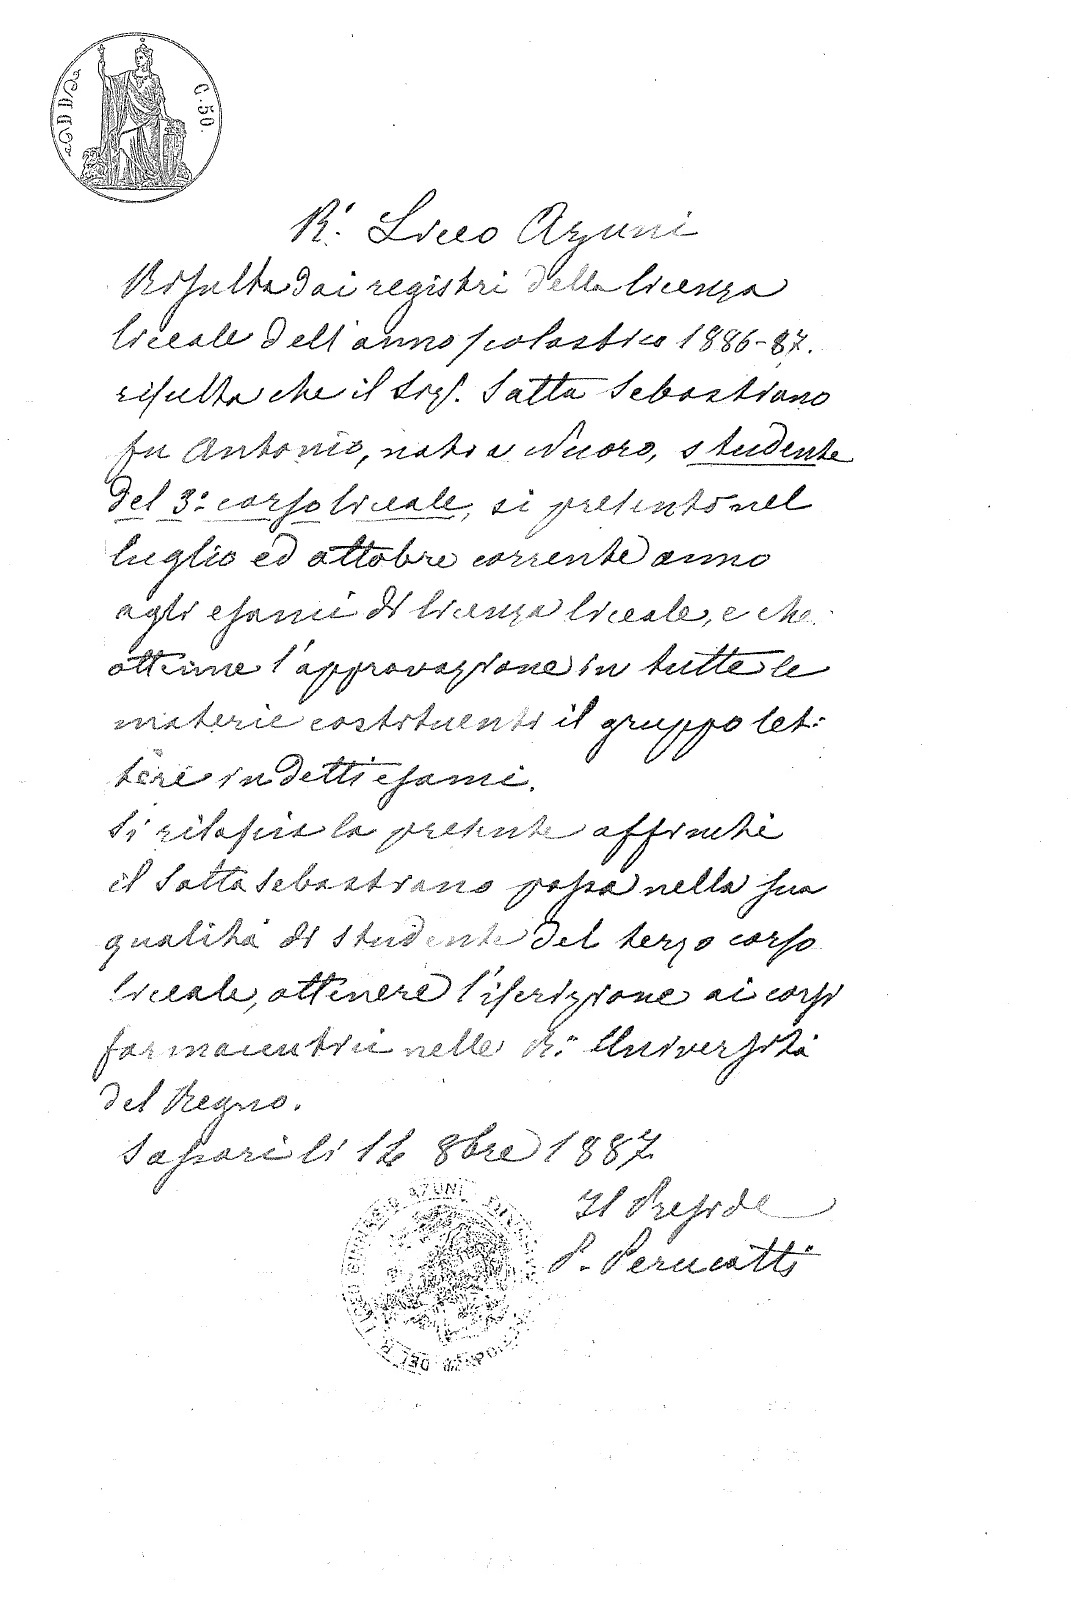 DD
C. 50.
R.° Liceo Azuni
Risulta dai registri della licenza
liceale dell'anno scolastico 1886-87.
risulta che il Sig.r Satta Sebastiano
fu Antonio, nato a Nuoro, studente
del 3.° corso liceale, si presentò nel
luglio ed ottobre corrente anno
agli esami di licenza liceale, e che
ottenne l'approvazione in tutte le
materie costituenti il gruppo let-
tere in detti esami.
Si rilascia la presente affinchè
il Satta Sebastiano possa nella sua
qualità di studente del terzo corso
liceale, ottenere l'iscrizione ai corsi
farmaceutici nelle R.e Università
del Regno.
Sassari li 14 8bre 1887.
Il Preside
P. Perucatti
DEL R. LICEO GINNASIO AZUNI